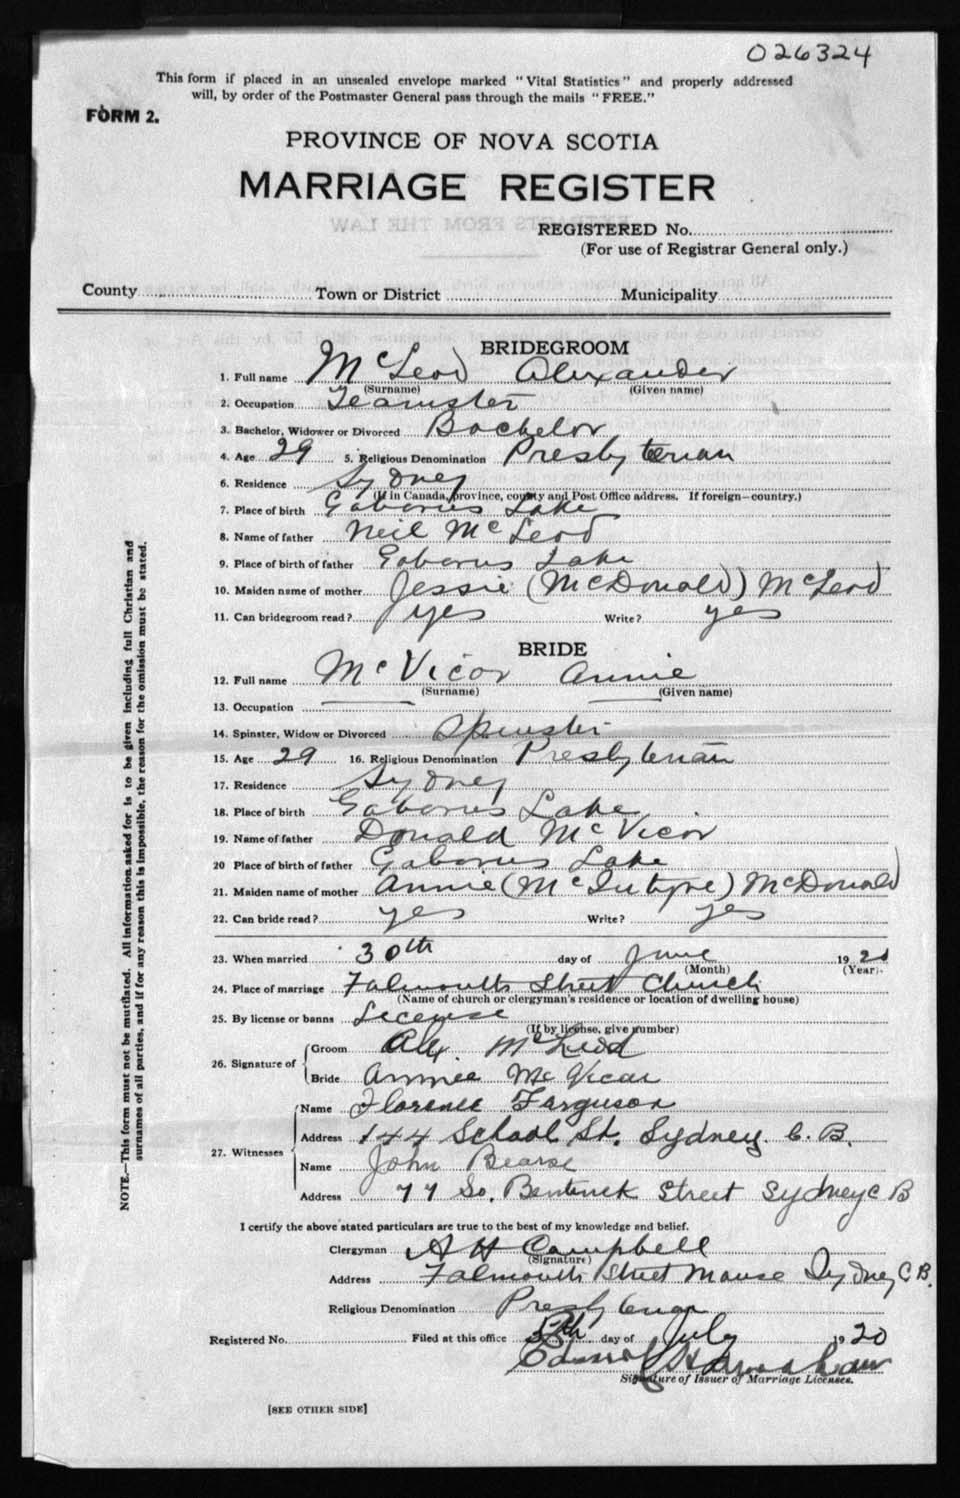 026324
This form if placed in an unsealed envelope marked "Vital Statistics" and properly addressed
will, by order of the Postmaster General pass through the mails "FREE."
FORM 2.
PROVINCE OF NOVA SCOTIA
MARRIAGE REGISTER
EXTRACTS FROM THE LAW
REGISTERED No.
(For use of Registrar General only.)
County Town or District Municipality
BRIDEGROOM
1. Full name McLeod Alexander
(Surname) (Given name)
2. Occupation Teamster
3. Bachelor, Widower or Divorced Bachelor
4. Age 29 5. Religious Denomination Presbyterian
6. Residence Sydney
(If in Canada, province, county and Post Office address. If foreign—country.)
7. Place of birth Gabarus Lake
8. Name of father Neil McLeod
9. Place of birth of father Gabarus Lake
10. Maiden name of mother Jessie (McDonald) McLeod
11. Can bridegroom read? yes Write? yes
BRIDE
12. Full name McVicar Annie
(Surname) (Given name)
13. Occupation
14. Spinster, Widow or Divorced Spinster
15. Age 29 16. Religious Denomination Presbyterian
17. Residence Sydney
18. Place of birth Gabarus Lake
19. Name of father Donald McVicar
20 Place of birth of father Gabarus Lake
21. Maiden name of mother Annie (McIntyre) McDonald
22. Can bride read? yes Write? yes
23. When married 30th day of June 1920
(Month) (Year)
24. Place of marriage Falmouth Street Church
(Name of church or clergyman's residence or location of dwelling house)
25. By license or banns License
(If by license, give number)
26. Signature of Groom Alex. McLeod
Bride Annie McVicar
27. Witnesses Name Florence Ferguson
Address 144 School St. Sydney C. B.
Name John Bearse
Address 77 So. Bentinck Street Sydney C B
I certify the above stated particulars are true to the best of my knowledge and belief.
Clergyman A H Campbell
(Signature)
Address Falmouth Street Manse Sydney C.B.
Religious Denomination Presbyterian
Registered No. Filed at this office day of July 1920
Signature of Issuer of Marriage Licenses.
[SEE OTHER SIDE]
NOTE.—This form must not be mutilated. All information asked for is to be given including full Christian and
surnames of all parties, and if for any reason this is impossible, the reason for the omission must be stated.